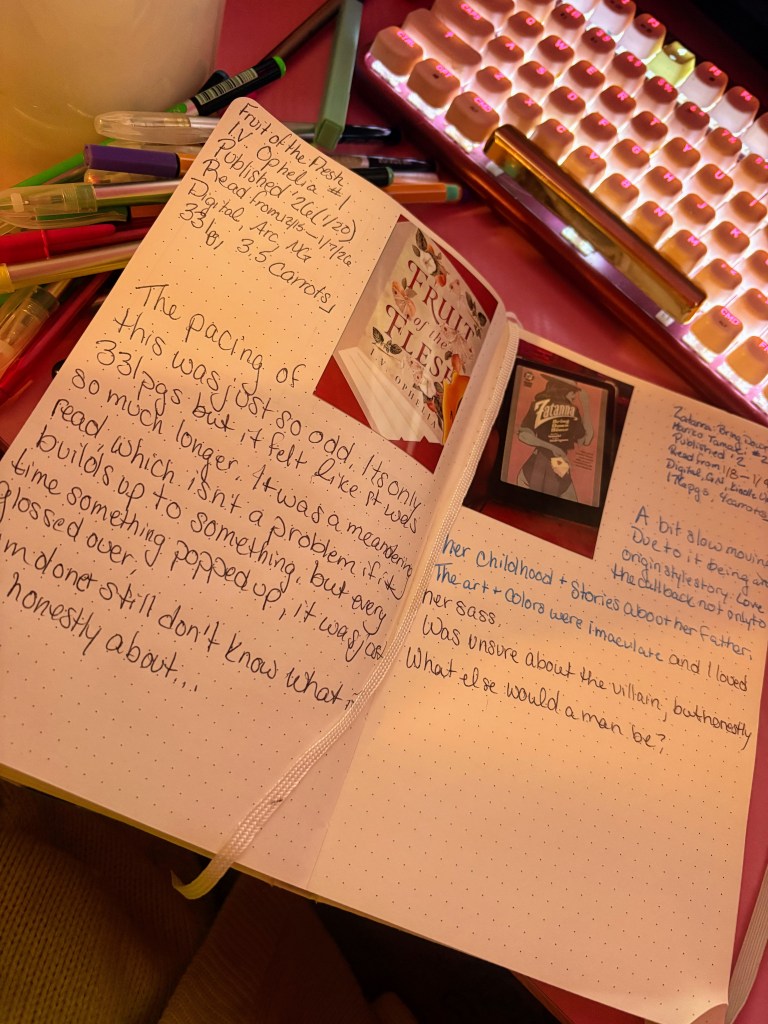 Fruit of the Flesh
I.V. Ophelia #1
Published '26 (1/20)
Read from 12/15 – 1/7/26
Digital, Arc, NG
331pg, 3.5 carrots
The pacing of
this was just so odd. Its only
331pgs but it felt like it was
so much longer. It was a meandering
read, which isn't a problem if it
builds up to something, but every
time something popped up, it was just
glossed over.
I'm done & still don't know what it
honestly about...
FRUIT
of the
FLESH
I.V. OPHELIA
Zatanna
Zatanna: Bring Down
Mariko Tamaki #2
Published: 2
Read from 1/8 – 1/9
Digital, GN, Kindle Un
176pgs, 4 carrots
A bit slow movin
Due to it being an
origin style story. Love
the callback not only to
her childhood + stories aboother Father.
The art + colors were imaculate and I loved
her sass.
Was unsure about the villain, but honestly
What else would a man be?